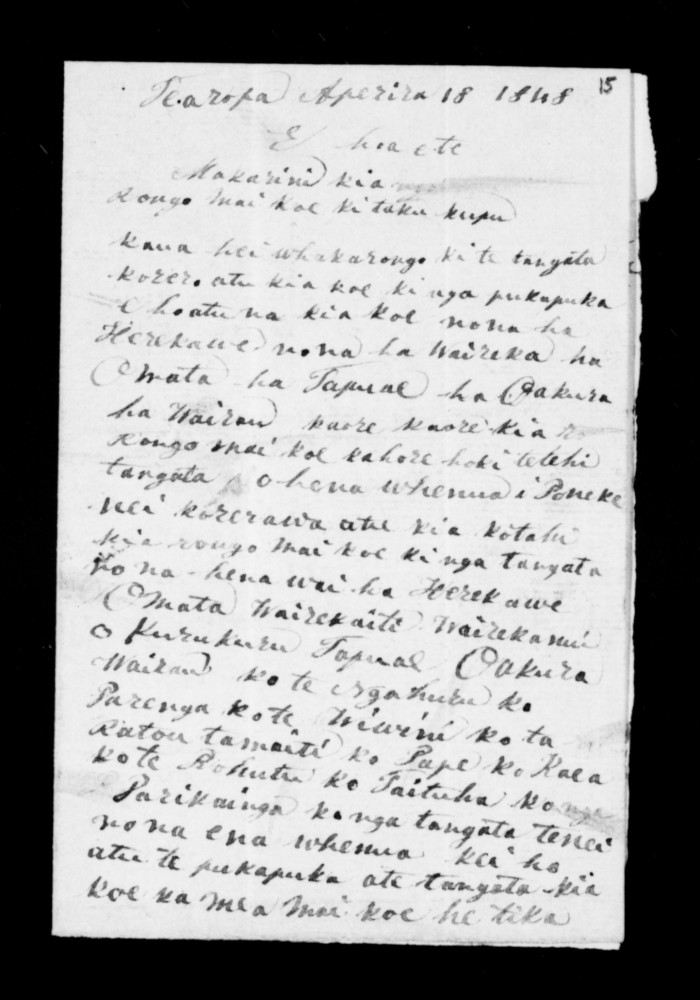 15
Tearopa Aperira 18 1848
E hoa e te
Makarini kia
Rongo mai koe ki taku kupu
kaua hei whakarongo ki te tangata
korero atu kia koe ki nga pukapuka
e hoatu na kia koe nona ha
Herekawe nona ha Waireka ha
Omata ha Tapuae ha Oakura
ha Wairau kaore kaore kia
Rongo mai koe kahore hoki tetehi
tangata o hena whenua i Poneke
nei korerawa atu kia kotahi
kia rongo mai koe ki nga tangata
no na hena wai ha Herekawe
Omata Wairekaiti Wairekanui
o Kurukuru Tapuae Oakura
Wairau ko te Ngahuru ko
Parenga ko te Wiwini ko ta
Ratou tamaiti ko Pape ko Raea
ko te Rohutu ko Taituha ko nga
Parikainga ko nga tangata tenei
no na ena whenua kei ho
atu te pukapuka ate tangata kia
koe ka mea mai koe he tika